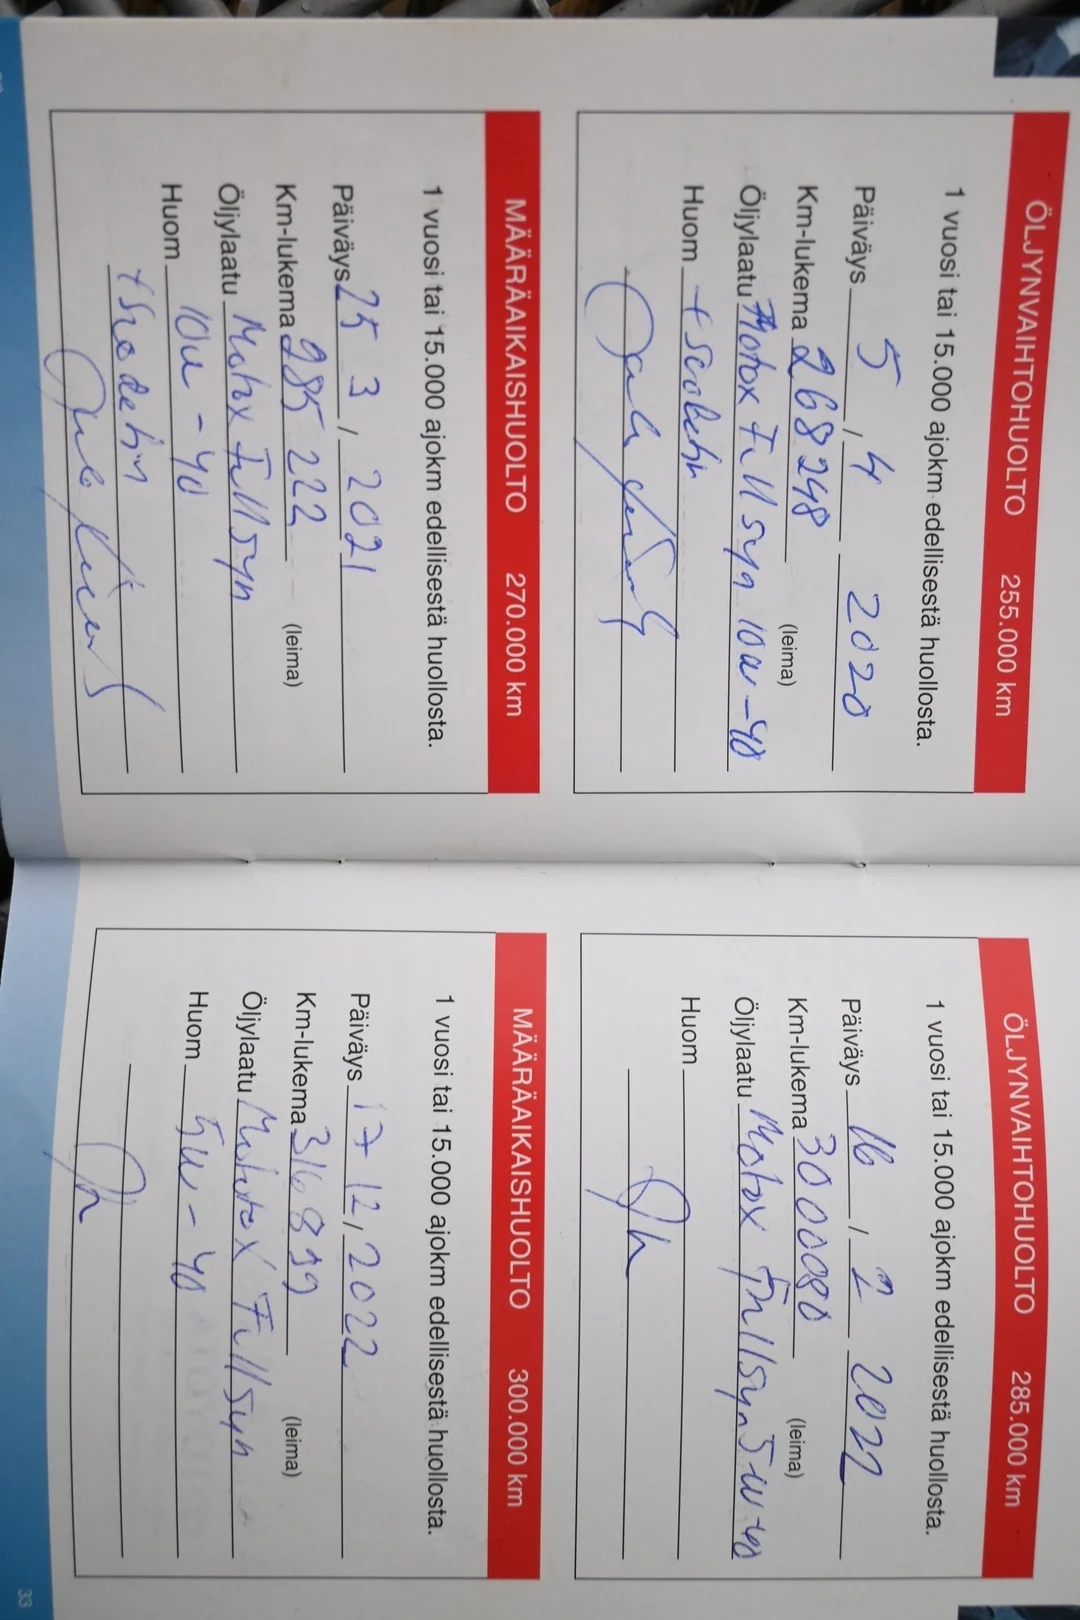 ÖLJYNVAIHTOHUOLTO 255.000 km
1 vuosi tai 15.000 ajokm edellisestä huollosta.
Päiväys 5 / 4 2020
Km-lukema 268248 (leima)
Öljylaatu Motox Fullsyn 10w-40
Huom
MÄÄRÄAIKAISHUOLTO 270.000 km
1 vuosi tai 15.000 ajokm edellisestä huollosta.
Päiväys 25 3 / 2021
Km-lukema 285222 (leima)
Öljylaatu Motox Fullsyn
Huom 10w-40
ÖLJYNVAIHTOHUOLTO 285.000 km
1 vuosi tai 15.000 ajokm edellisestä huollosta.
Päiväys 16 / 1 2022
Km-lukema 300080 (leima)
Öljylaatu Motox Fullsyn 5w-40
Huom
MÄÄRÄAIKAISHUOLTO 300.000 km
1 vuosi tai 15.000 ajokm edellisestä huollosta.
Päiväys 17 12 / 2022
Km-lukema 316899 (leima)
Öljylaatu Fullsyn
Huom 5w-40
33